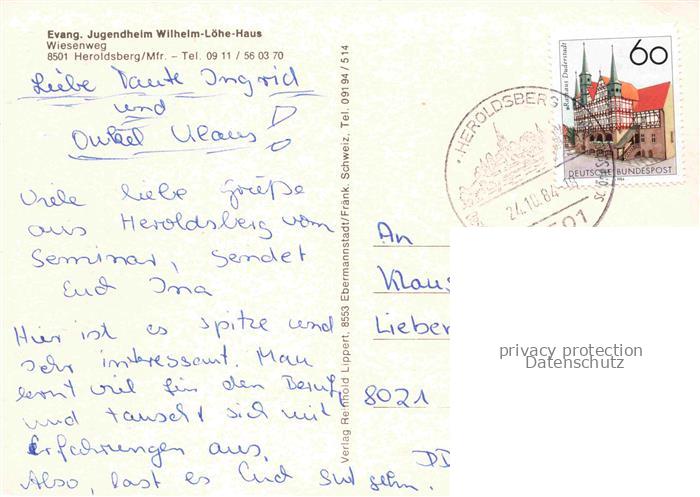 Evang. Jugendheim Wilhelm-Löhe-Haus
Wiesenweg
8501 Heroldsberg/Mfr. – Tel. 09 11 / 56 03 70
Liebe Tante Ingrid
und
Onkel Klaus!
Viele liebe Grüße
aus Heroldsberg vom
Seminar, sendet
Euch Ina
Hier ist es spitze und
sehr interessant. Man
lernt viel für den Beruf
und tauscht sich mit
Erfahrungen aus.
Also, lasst es Euch gut gehn.
Verlag Reinhold Lippert, 8553 Ebermannstadt/Fränk. Schweiz, Tel. 09194/514
HEROLDSBERG
24.10.84
8501
60
Rathaus Duderstadt
DEUTSCHE BUNDESPOST
An
Klaus
Lieber
8021
privacy protection
Datenschutz